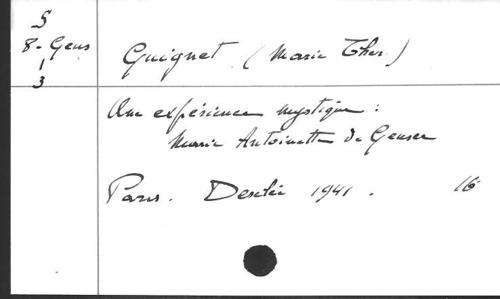 S
8 - Gens
1
3
Guignet (Marie Ther.)
Une expérience mystique :
Marie Antoinette de Geuser
Paris. Desclée 1941. 16